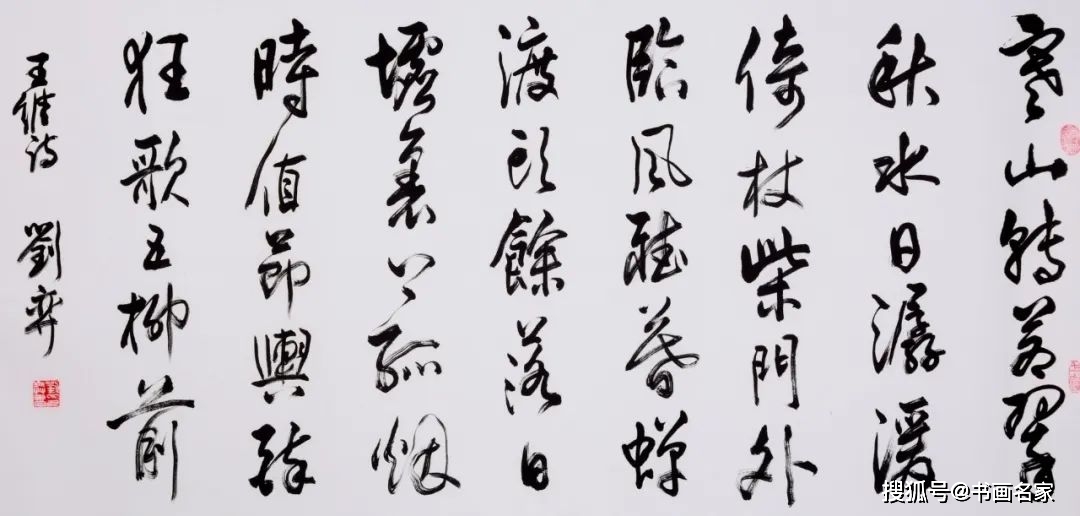 寒山轉蒼翠
秋水日潺湲
倚杖柴門外
臨風聽暮蟬
渡頭餘落日
墟裏上孤烟
時值節輿醉
狂歌五柳前
王維詩 劉弈
搜狐号@书画名家